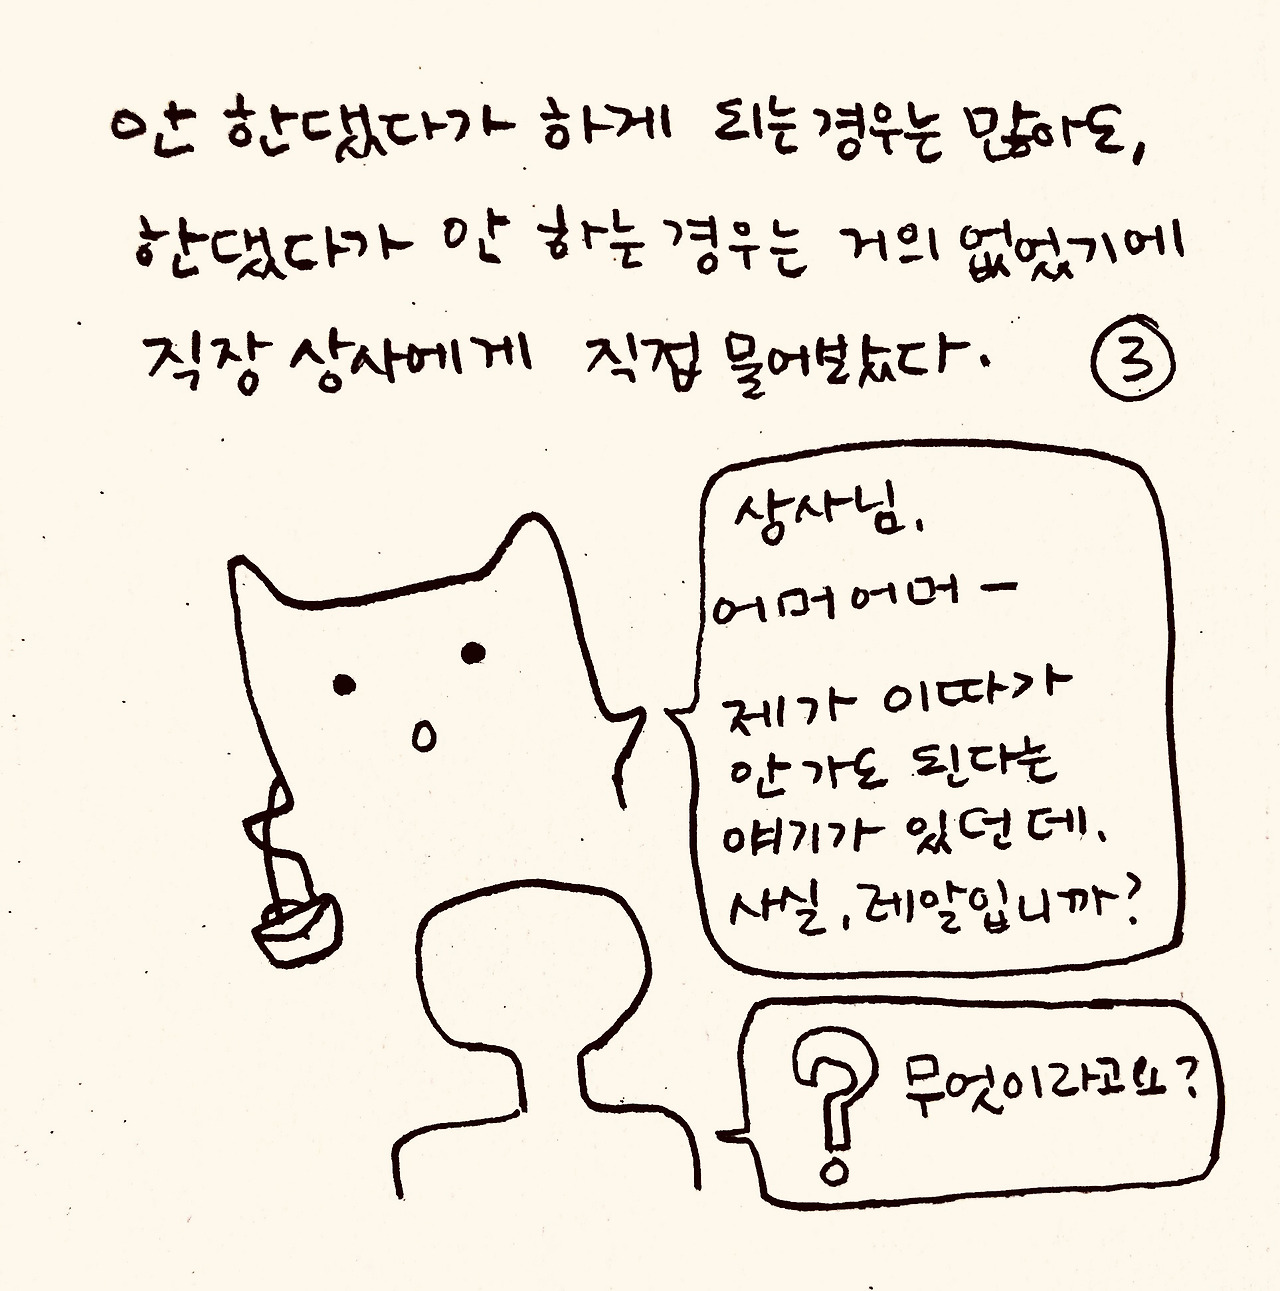 안 한댔다가 하게 되는경우는 많아도,
한댔다가 안 하는 경우는 거의 없었기에
직장 상사에게 직접 물어보았다. ③
상사님,
어머어머-
제가 이따가
안가도 된다는
얘기가 있던데,
사실, 레알입니까?
? 무엇이라고요?